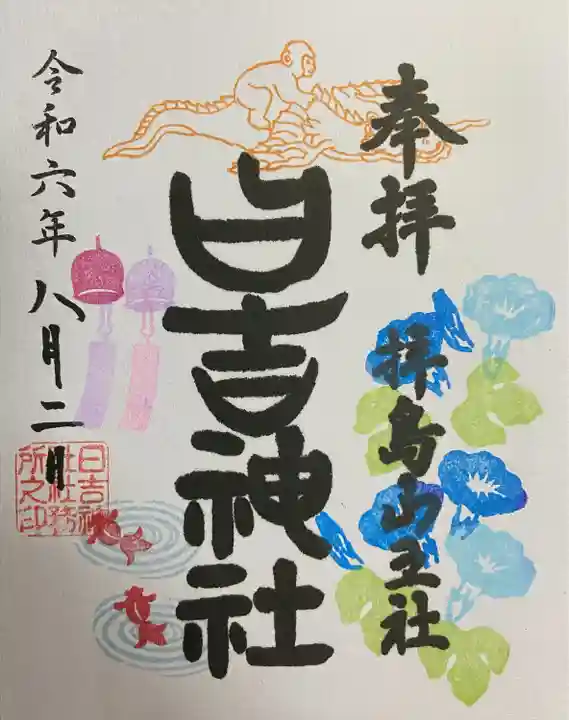 奉拝
拝島山王社
日吉神社
令和六年八月二日
日吉神
社社務
所之印